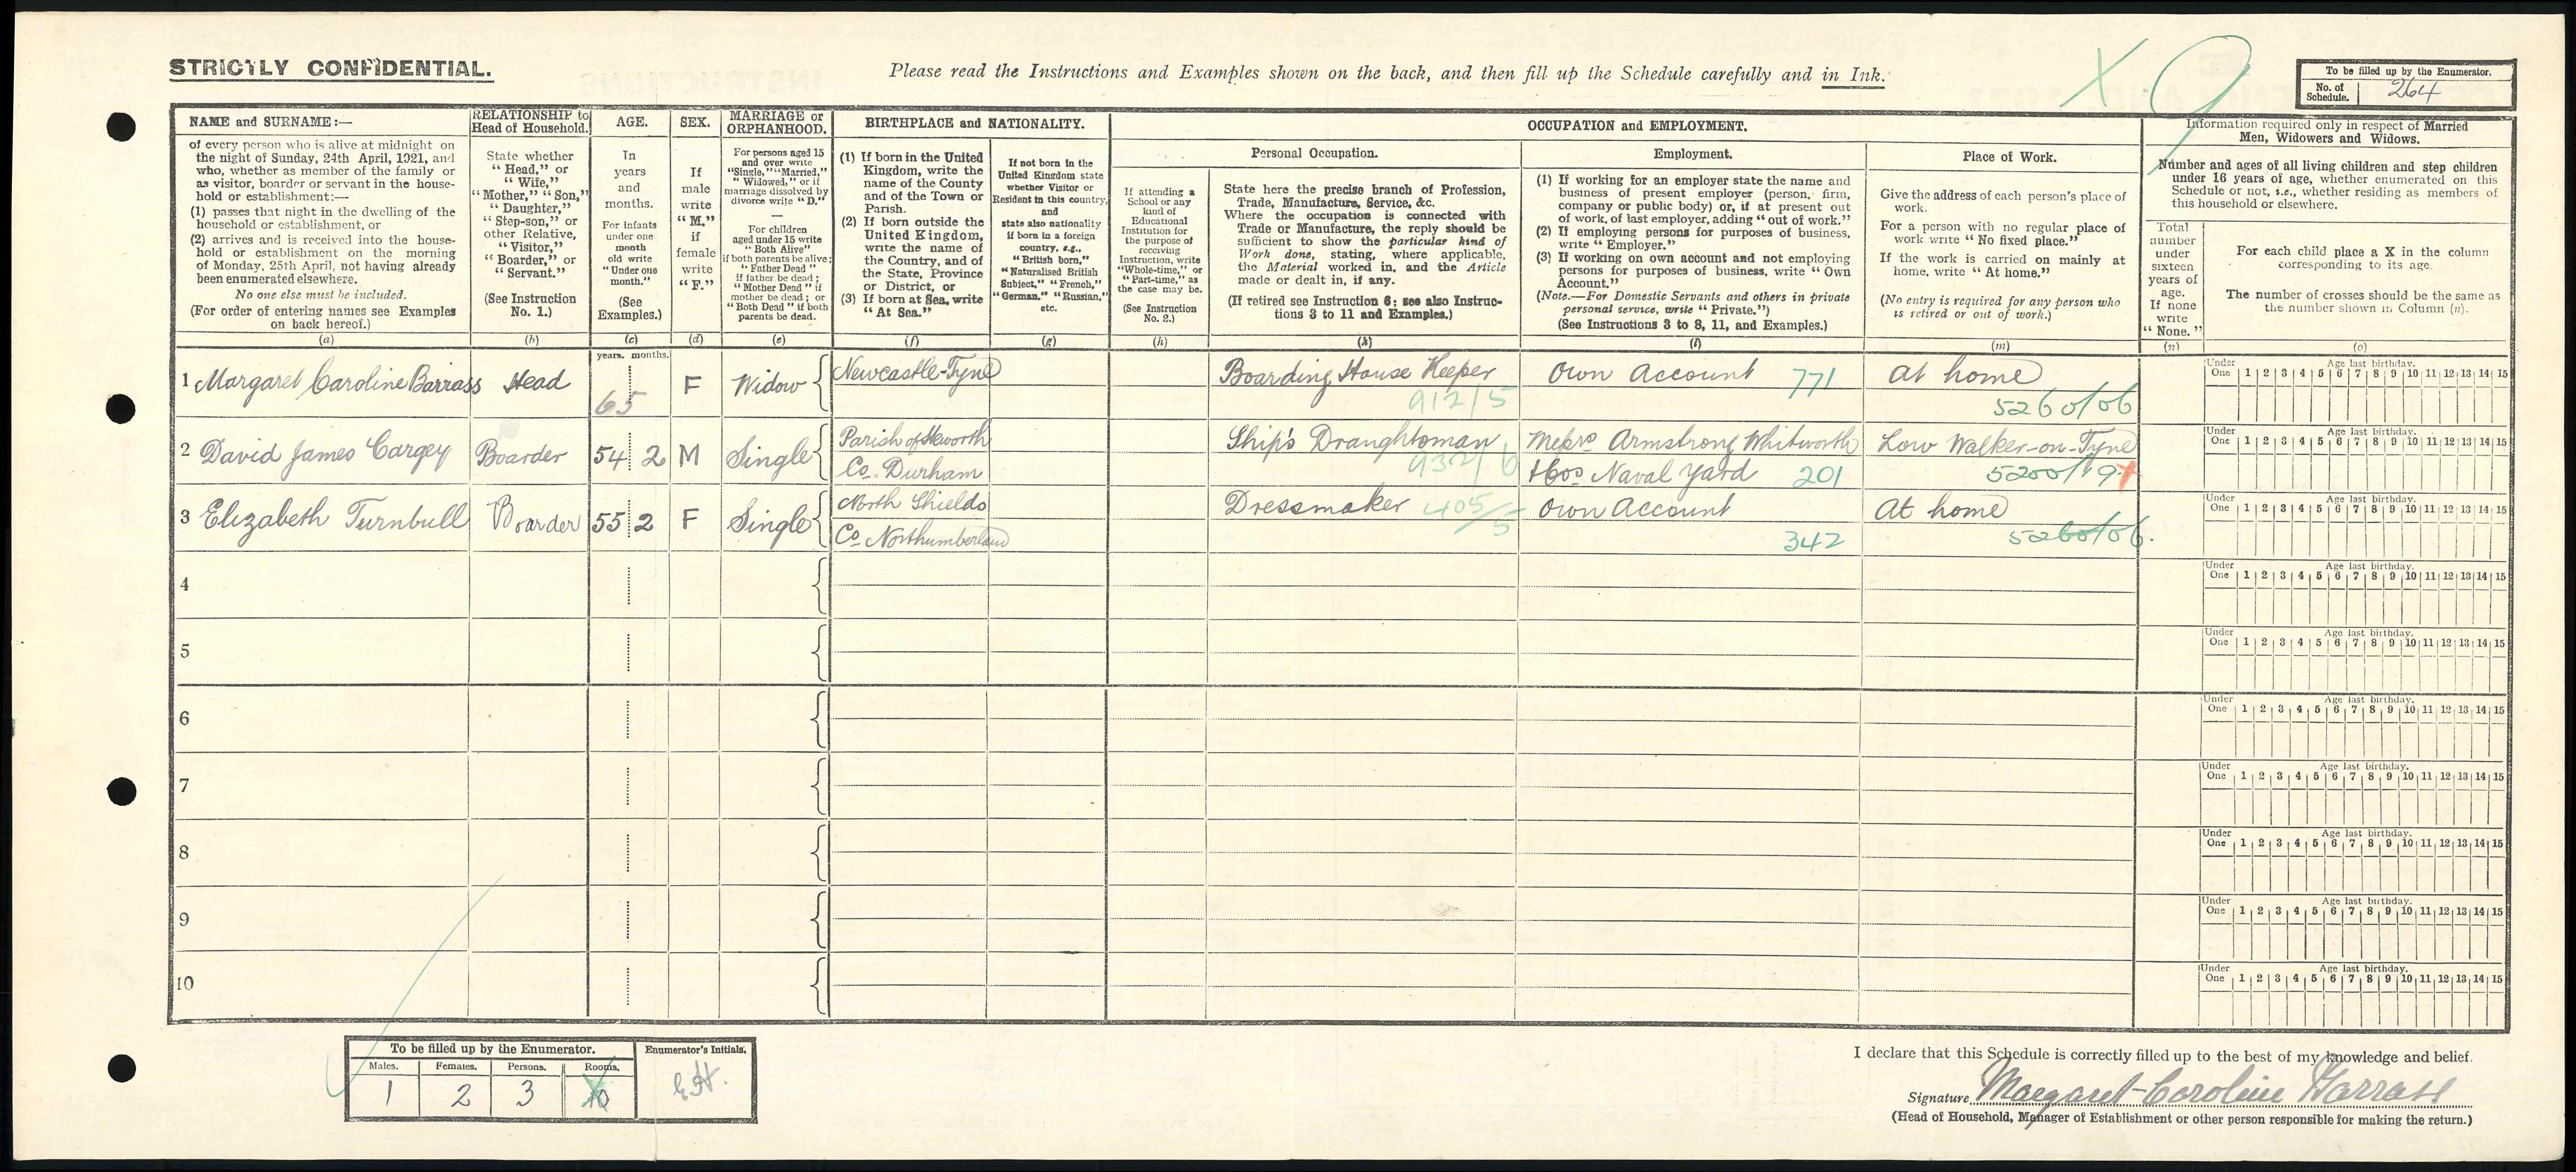 STRICTLY CONFIDENTIAL.
Please read the Instructions and Examples shown on the back, and then fill up the Schedule carefully and in Ink.
To be filled up by the Enumerator.
No. of Schedule. 264
NAME and SURNAME:—
of every person who is alive at midnight on
the night of Sunday, 24th April, 1921, and
who, whether as member of the family or
as visitor, boarder or servant in the house-
hold or establishment:—
(1) passes that night in the dwelling of the
household or establishment, or
(2) arrives and is received into the house-
hold or establishment on the morning
of Monday, 25th April, not having already
been enumerated elsewhere.
No one else must be included.
(For order of entering names see Examples
on back hereof.)
(a)
RELATIONSHIP to
Head of Household.
State whether
"Head," or
"Wife,"
"Mother," "Son,"
"Daughter,"
"Step-son," or
other Relative,
"Visitor,"
"Boarder," or
"Servant."
(See Instruction
No. 1.)
(b)
AGE.
In
years
and
months.
For infants
under one
month
old write
"Under one
month."
(See
Examples.)
(c)
SEX.
If
male
write
"M."
if
female
write
"F."
(d)
MARRIAGE or
ORPHANHOOD.
For persons aged 15
and over write
"Single," "Married,"
"Widowed," or if
marriage dissolved by
divorce write "D."
For children
aged under 15 write
"Both Alive"
if both parents be alive;
"Father Dead"
if father be dead;
"Mother Dead" if
mother be dead; or
"Both Dead" if both
parents be dead.
(e)
BIRTHPLACE and NATIONALITY.
(1) If born in the United
Kingdom, write the
name of the County
and of the Town or
Parish.
(2) If born outside the
United Kingdom,
write the name of
the Country, and of
the State, Province
or District, or
(3) If born at Sea, write
"At Sea."
(f)
If not born in the
United Kingdom state
whether Visitor or
Resident in this country,
and
state also nationality
if born in a foreign
country, e.g.,
"British born,"
"Naturalised British
Subject," "French,"
"German," "Russian,"
etc.
(g)
OCCUPATION and EMPLOYMENT.
If attending a
School or any
kind of
Educational
Institution for
the purpose of
receiving
Instruction, write
"Whole-time," or
"Part-time," as
the case may be.
(See Instruction
No. 2.)
(h)
Personal Occupation.
State here the precise branch of Profession,
Trade, Manufacture, Service, &c.
Where the occupation is connected with
Trade or Manufacture, the reply should be
sufficient to show the particular kind of
Work done, stating, where applicable,
the Material worked in, and the Article
made or dealt in, if any.
(If retired see Instruction 6; see also Instruc-
tions 3 to 11 and Examples.)
(k)
Employment.
(1) If working for an employer state the name and
business of present employer (person, firm,
company or public body) or, if at present out
of work, of last employer, adding "out of work."
(2) If employing persons for purposes of business,
write "Employer."
(3) If working on own account and not employing
persons for purposes of business, write "Own
Account."
(Note.—For Domestic Servants and others in private
personal service, write "Private.")
(See Instructions 3 to 8, 11, and Examples.)
(l)
Place of Work.
Give the address of each person's place of
work.
For a person with no regular place of
work write "No fixed place."
If the work is carried on mainly at
home, write "At home."
(No entry is required for any person who
is retired or out of work.)
(m)
Information required only in respect of Married
Men, Widowers and Widows.
Number and ages of all living children and step children
under 16 years of age, whether enumerated on this
Schedule or not, i.e., whether residing as members of
this household or elsewhere.
Total
number
under
sixteen
years of
age.
If none
write
"None."
(n)
For each child place a X in the column
corresponding to its age.
The number of crosses should be the same as
the number shown in Column (n).
(o)
years. months.
1 Margaret Caroline Barrass Head 65 F Widow Newcastle-Tyne Boarding House Keeper 912/5 Own Account 771 At home 5260/06
Under One 1 2 3 4 5 6 7 8 9 10 11 12 13 14 15 Age last birthday.
2 David James Cargey Boarder 54 2 M Single Parish of Heworth Co. Durham Ship's Draughtsman 932/6 Messrs Armstrong Whitworth & Cos Naval Yard 201 Low Walker-on-Tyne 5200/19
Under One 1 2 3 4 5 6 7 8 9 10 11 12 13 14 15 Age last birthday.
3 Elizabeth Turnbull Boarder 55 2 F Single North Shields Co Northumberland Dressmaker 405/5 Own Account 342 At home 5260/06.
Under One 1 2 3 4 5 6 7 8 9 10 11 12 13 14 15 Age last birthday.
4
Under One 1 2 3 4 5 6 7 8 9 10 11 12 13 14 15 Age last birthday.
5
Under One 1 2 3 4 5 6 7 8 9 10 11 12 13 14 15 Age last birthday.
6
Under One 1 2 3 4 5 6 7 8 9 10 11 12 13 14 15 Age last birthday.
7
Under One 1 2 3 4 5 6 7 8 9 10 11 12 13 14 15 Age last birthday.
8
Under One 1 2 3 4 5 6 7 8 9 10 11 12 13 14 15 Age last birthday.
9
Under One 1 2 3 4 5 6 7 8 9 10 11 12 13 14 15 Age last birthday.
10
Under One 1 2 3 4 5 6 7 8 9 10 11 12 13 14 15 Age last birthday.
To be filled up by the Enumerator.
Males. Females. Persons. Rooms.
1 2 3
Enumerator's Initials.
E.H.
I declare that this Schedule is correctly filled up to the best of my knowledge and belief.
Signature Margaret Caroline Barrass
(Head of Household, Manager of Establishment or other person responsible for making the return.)